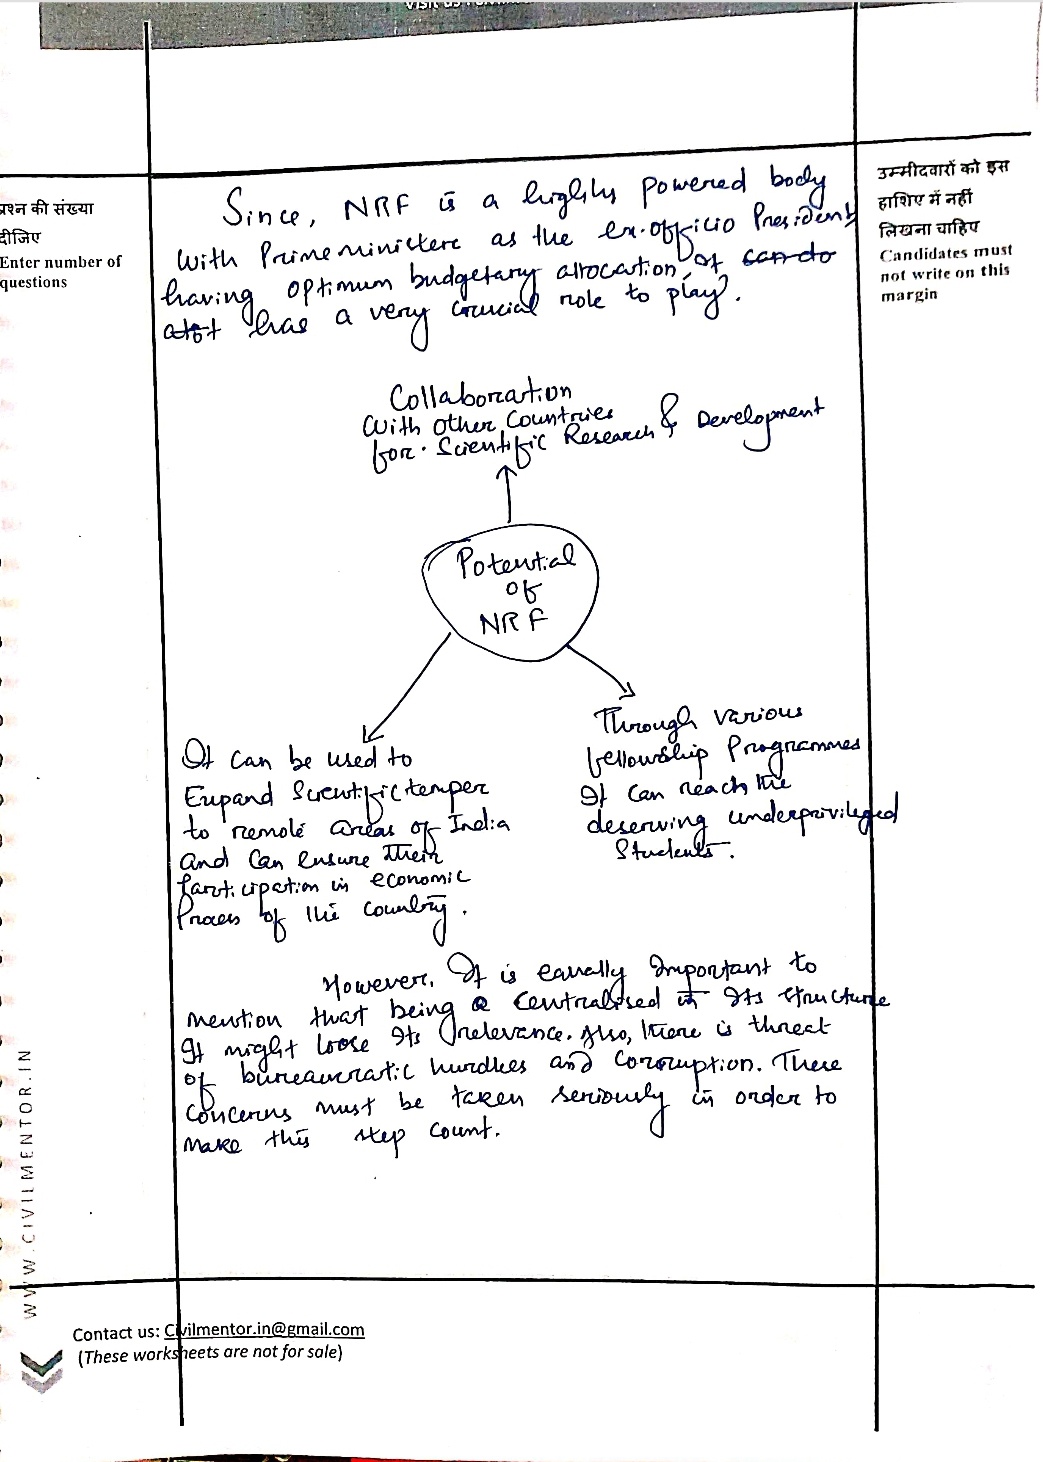 प्रश्न की संख्या
दीजिए
Enter number of
questions
उम्मीदवारों को इस
हाशिए में नहीं
लिखना चाहिए
Candidates must
not write on this
margin
Since, NRF is a highly powered body
with Prime ministere as the ex-officio President,
having optimum budgetary allocation, it can do
a lot has a very crucial role to play.
Collaboration
with other Countries
for Scientific Research & Development
Potential
of
NRF
It can be used to
Expand Scientific temper
to remote areas of India
and can ensure their
Participation in economic
Process of the country.
Through various
fellowship Programmes
It can reach the
deserving underprivileged
Students.
However, It is equally Important to
mention that being a centralised in Its structure
It might loose Its relevance. Also, there is threat
of bureaucratic hurdles and corruption. These
concerns must be taken seriously in order to
make this step count.
WWW.CIVILMENTOR.IN
Contact us: Civilmentor.in@gmail.com
(These worksheets are not for sale)